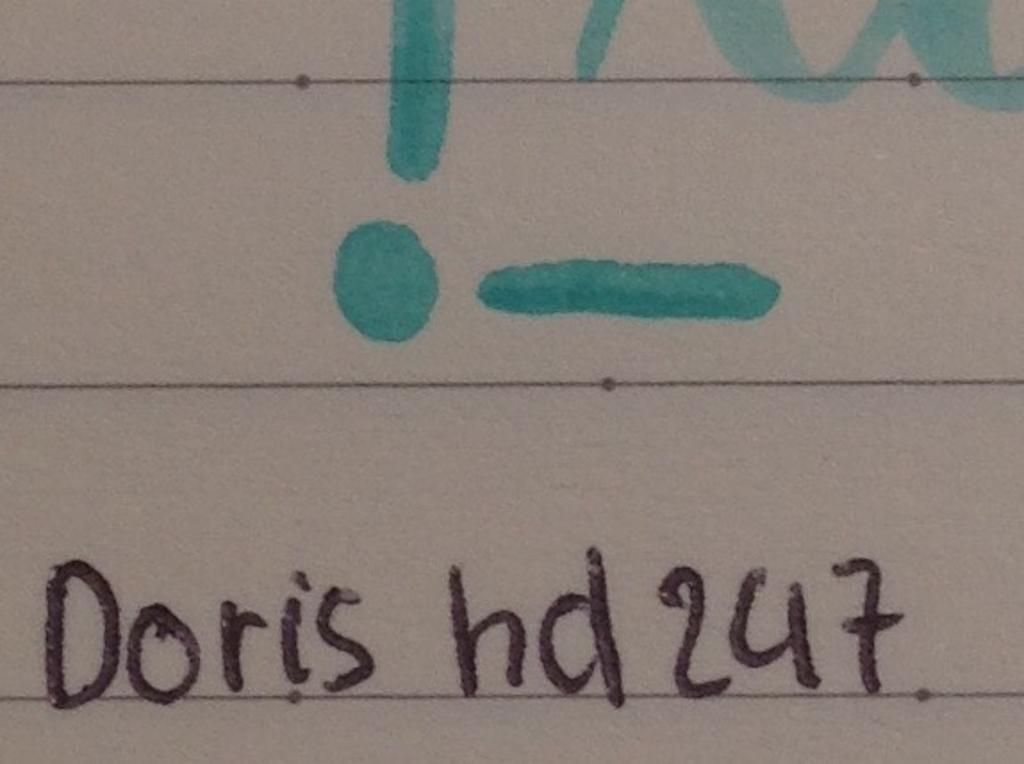 Doris hd247